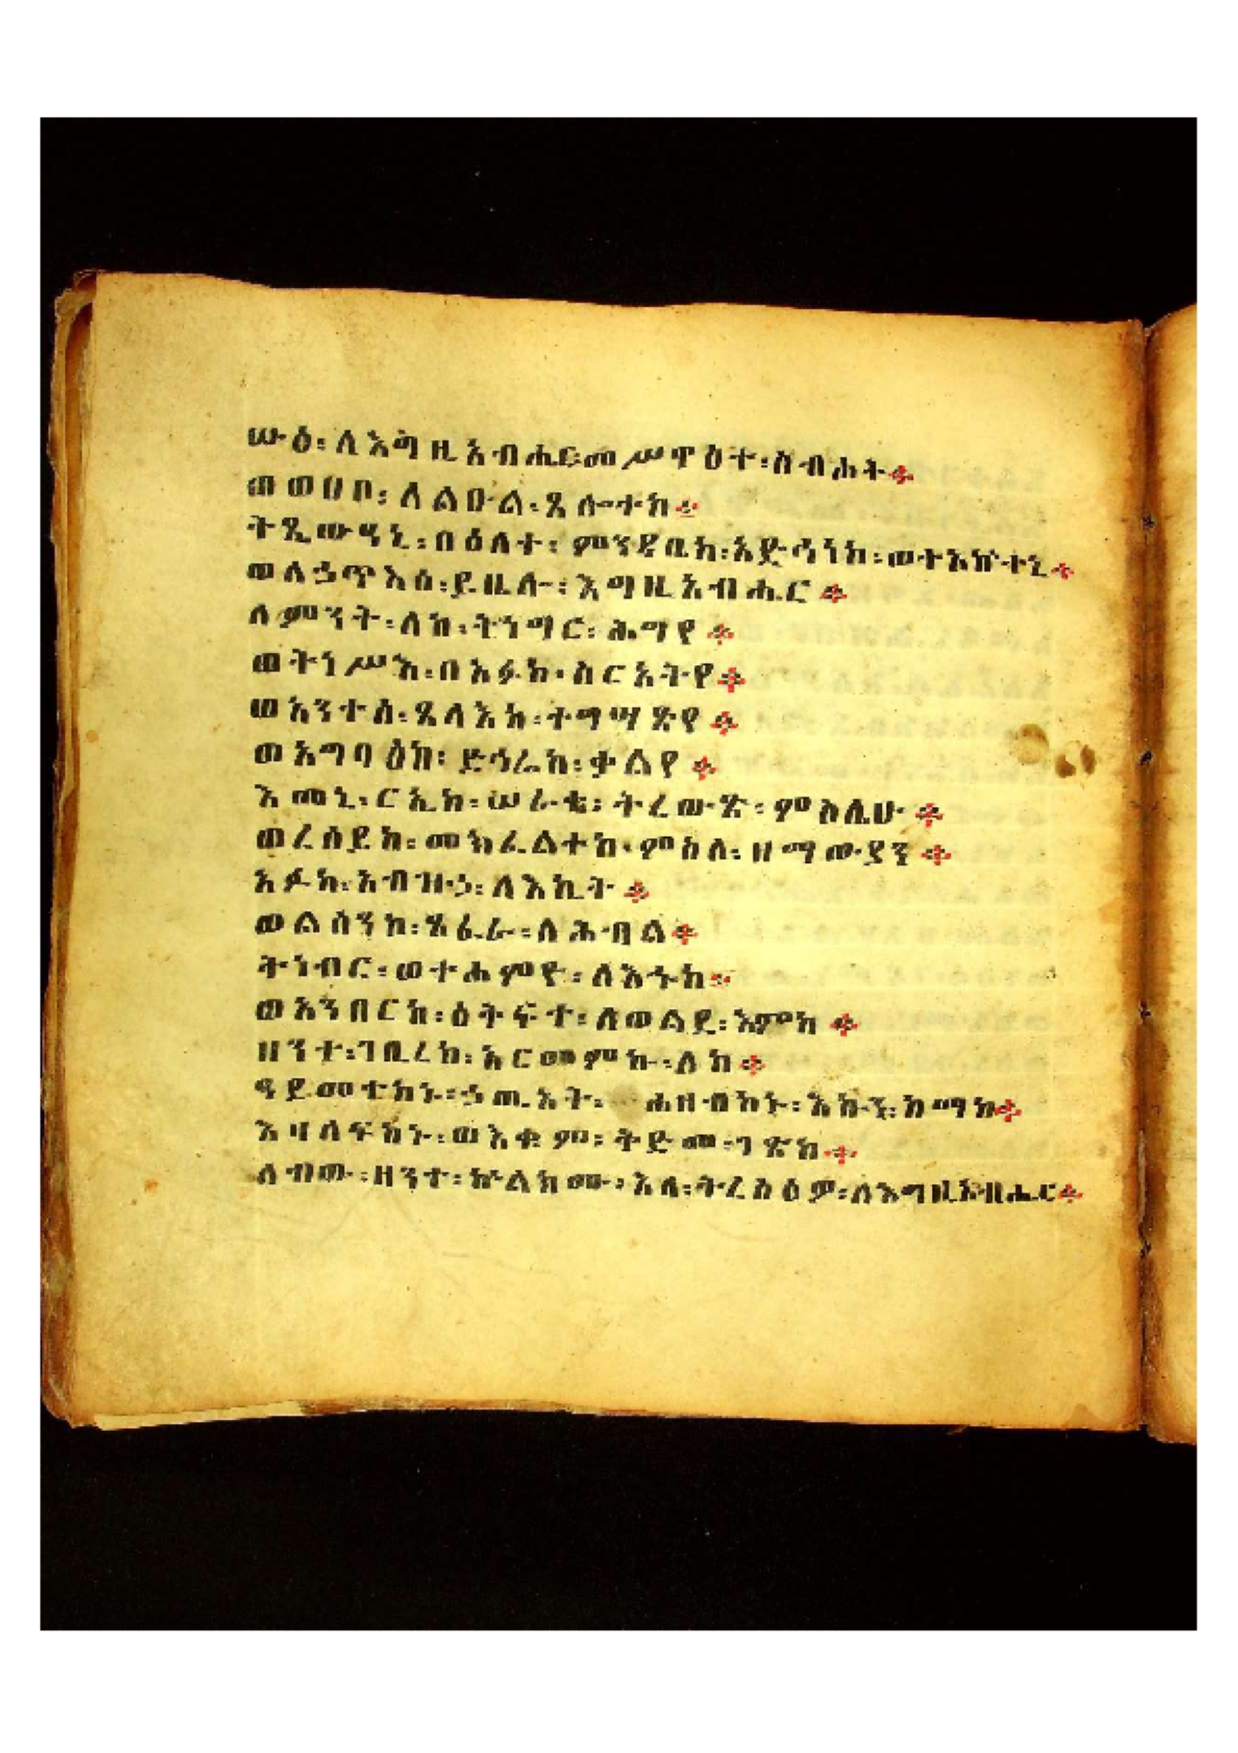 ሡዕ፡ ለእግዚአብሔር፡መሥዋዕተ፡ስብሐት፨
ወሀቦ፡ ለልዑል፡ጸሎተከ፨
ትጼውዓኒ፡በዕለተ፡ ምንዳቤከ፡አድኅነከ፡ወተአኵተኒ፨
ወለኃጥእሰ፡ይቤሎ፡ እግዚአብሔር፨
ለምንት፡ለከ፡ትነግር፡ ሕግየ፨
ወትነሥእ፡በአፉከ፡ስርአትየ፨
ወአንተሰ፡ጸላእከ፡ተግሣጽየ፨
ወአግባዕከ፡ ድኅሬከ፡ቃልየ፨
እመኒ፡ርኢከ፡ሠራቄ፡ ትረውጽ፡ ምስሌሁ፨
ወረሰይከ፡ መክፈልተከ፡ምስለ፡ ዘማውያን፨
አፉከ፡አብዝኃ፡ለእኪት፨
ወልሳንከ፡ጸፈራ፡ለሕብል፨
ትነብር፡ወተሐምዮ፡ ለእኁከ፨
ወአንበርከ፡ዕትፍተ፡ለወልደ፡እምከ፨
ዘንተ፡ገቢረከ፡አርመምኩ፡ለከ፨
ዓደመተከኑ፡ኃጢአት፡ ሐዘብከኑ፡እኩን፡ከማከ፨
እዛለፍከኑ፡ወእቁም፡ ቅድመ፡ገጽከ፨
ለብዉ፡ዘንተ፡ኵልክሙ፡እለ፡ትረስዕዎ፡ለእግዚአብሔር፨